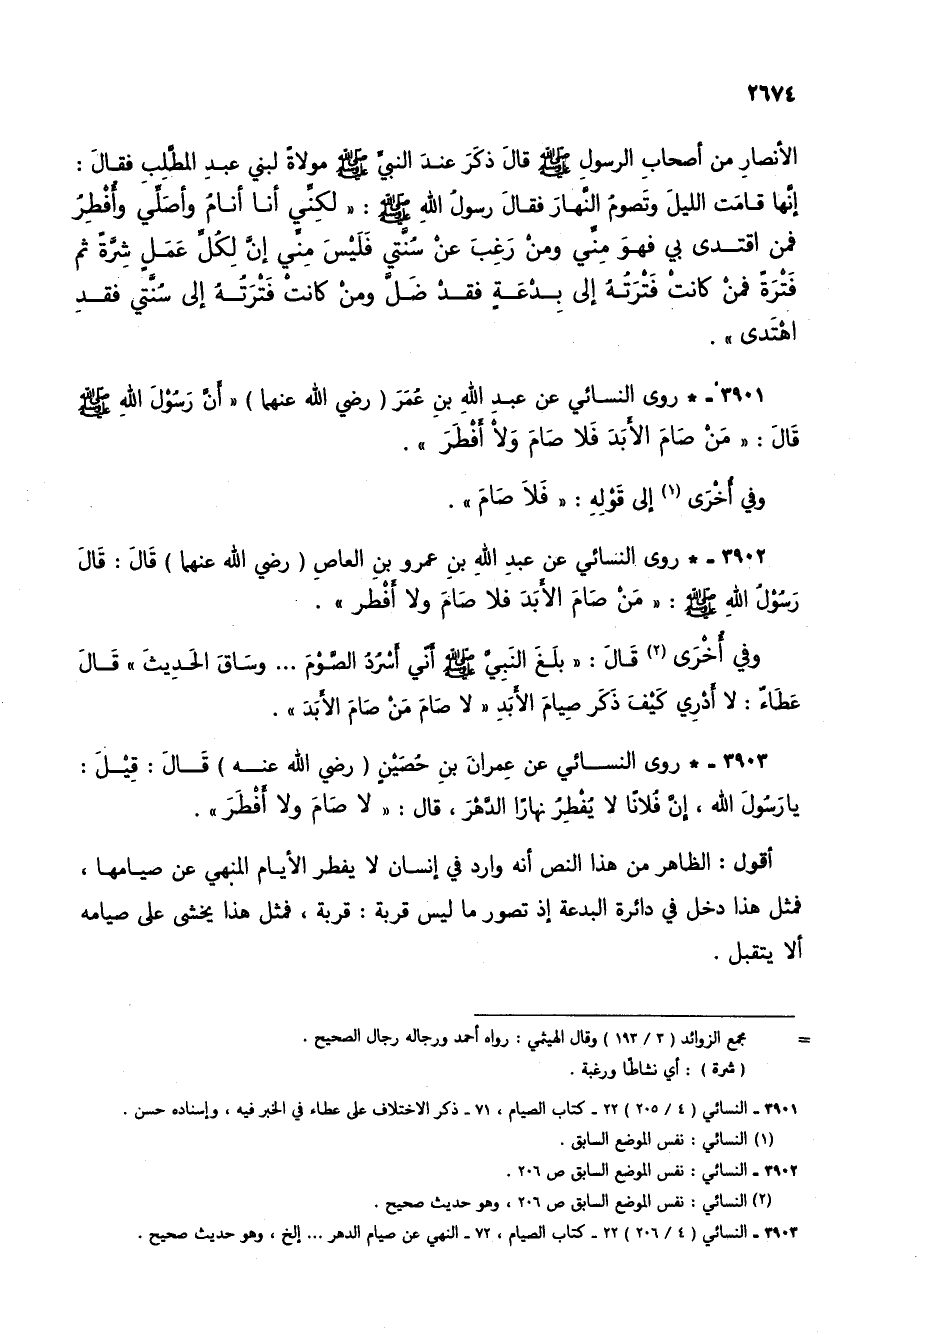 ٢٦٧٤
الأنصارِ من أصحابِ الرسولِ ﷺ قالَ ذكَرَ عندَ النبيِّ ﷺ مولاةً لبني عبدِ المطَّلبِ فقالَ :
إنَّها قامَت الليلَ وتَصومُ النَّهارَ فقالَ رسولُ اللهِ ﷺ : « لكنِّي أنا أنامُ وأُصلِّي وأُفْطِرُ
فمن اقتدى بي فهوَ مِنِّي ومنْ رَغِبَ عنْ سُنَّتي فَلَيْسَ مِنِّي إنَّ لِكُلِّ عَمَلٍ شِرَّةً ثم
فَتْرَةً فمنْ كانتْ فَتْرَتُهُ إلى بِدْعَةٍ فقدْ ضَلَّ ومنْ كانتْ فَتْرَتُهُ إلى سُنَّتي فقدِ
اهْتَدى » .
٣٩٠١ ـ * روى النسائي عن عبدِ اللهِ بنِ عُمَرَ ( رضي الله عنهما ) « أَنَّ رَسُوْلَ اللهِ ﷺ
قَالَ : « مَنْ صَامَ الأَبَدَ فَلا صَامَ وَلاْ أَفْطَرَ » .
وفي أُخْرَى (١) إلى قَوْلِهِ : « فَلاَ صَامَ » .
٣٩٠٢ ـ * روى النسائي عن عبدِ اللهِ بنِ عمرو بنِ العاصِ ( رضي الله عنهما ) قَالَ : قَالَ
رَسُوْلُ اللهِ ﷺ : « مَنْ صَامَ الأَبَدَ فلا صَامَ ولا أَفْطر » .
وفي أُخْرَى (٢) قَالَ : « بلَغَ النَبيَّ ﷺ أَنِّي أَسْرُدُ الصَّوْمَ ... وسَاقَ الحَديثَ » قَالَ
عَطَاءٌ : لا أَدْرِي كَيْفَ ذَكَر صِيامَ الأَبَدِ « لا صَامَ مَنْ صَامَ الأَبَدَ » .
٣٩٠٣ ـ * روى النسائي عن عِمرانَ بنِ حُصَيْنٍ ( رضي الله عنه ) قَالَ : قِيْلَ :
يارَسُولَ الله ، إنَّ فُلانًا لا يُفْطِرُ نهارًا الدَّهْرَ ، قال : « لا صَامَ ولا أَفْطَرَ » .
أقول : الظاهر من هذا النص أنه وارد في إنسان لا يفطر الأيام المنهي عن صيامها ،
فمثل هذا دخل في دائرة البدعة إذ تصور ما ليس قربة : قربة ، فمثل هذا يخشى على صيامه
ألا يتقبل .
= مجمع الزوائد ( ٣ / ١٩٣ ) وقال الهيثمي : رواه أحمد ورجاله رجال الصحيح .
( شرة ) : أي نشاطًا ورغبة .
٣٩٠١ ـ النسائي ( ٤ / ٢٠٥ ) ٢٢ ـ كتاب الصيام ، ٧١ ـ ذكر الاختلاف على عطاء في الخبر فيه ، وإسناده حسن .
(١) النسائي : نفس الموضع السابق .
٣٩٠٢ ـ النسائي : نفس الموضع السابق ص ٢٠٦ .
(٢) النسائي : نفس الموضع السابق ص ٢٠٦ ، وهو حديث صحيح .
٣٩٠٣ ـ النسائي ( ٤ / ٢٠٦ ) ٢٢ ـ كتاب الصيام ، ٧٢ ـ النهي عن صيام الدهر ... إلخ ، وهو حديث صحيح .